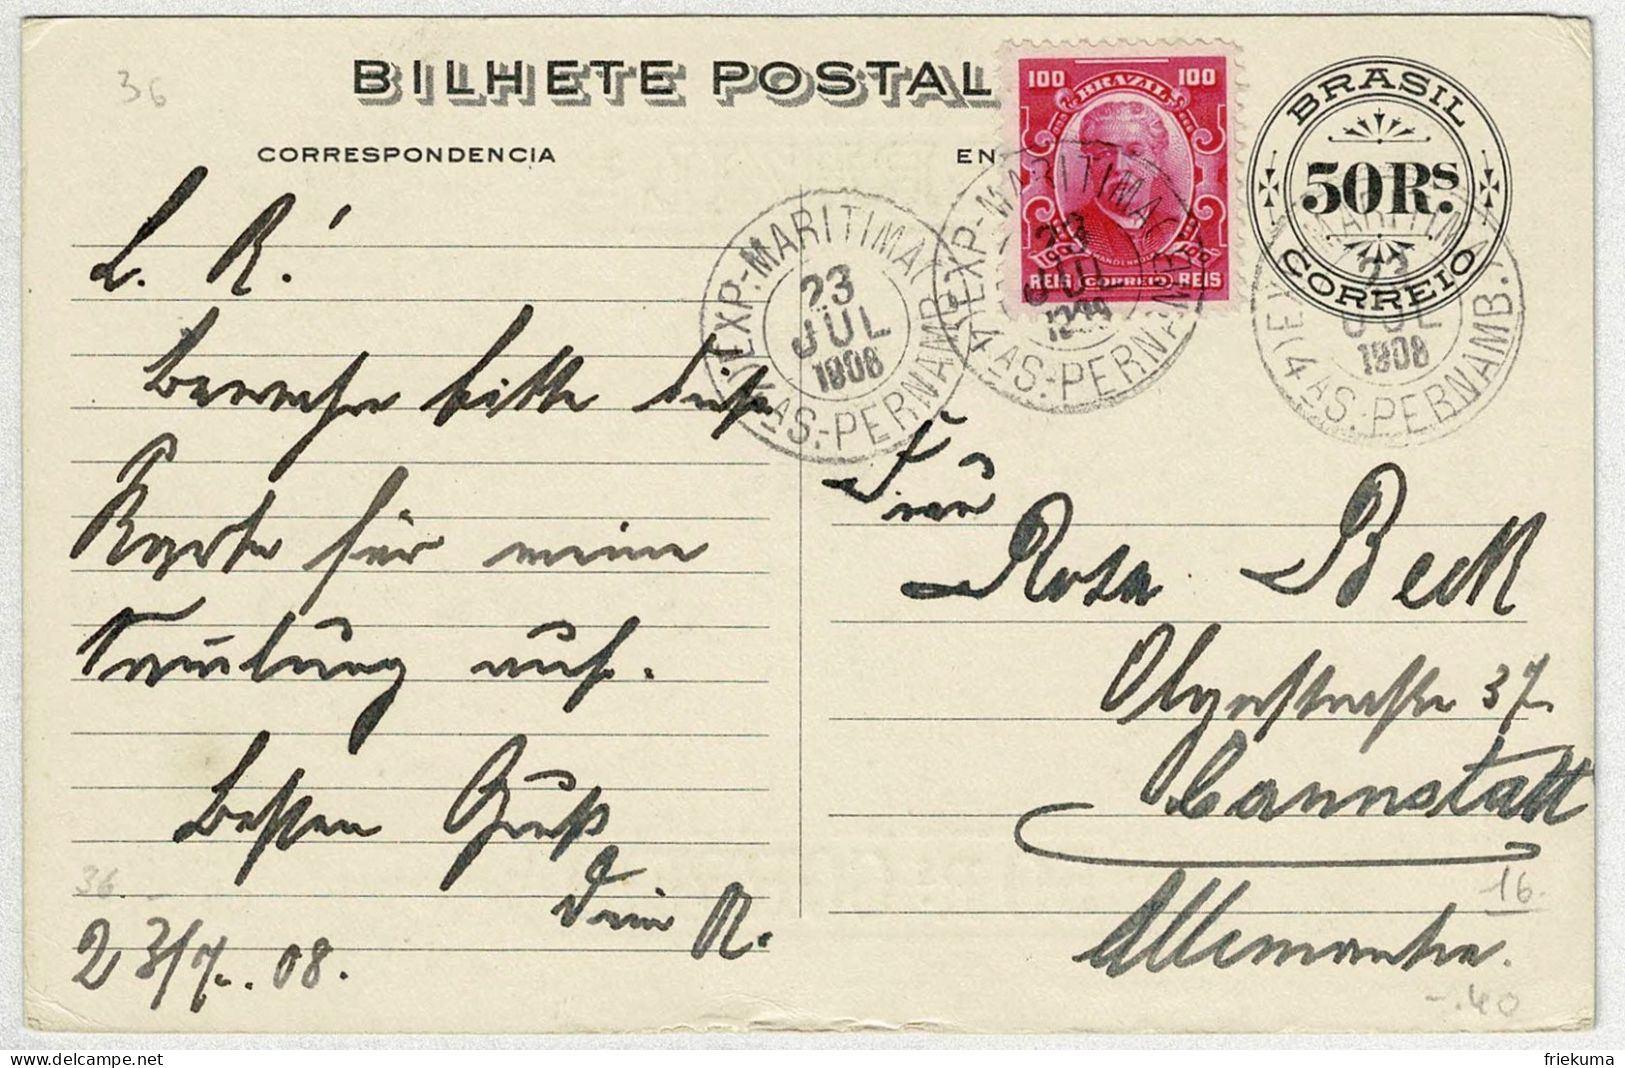 36
BILHETE POSTAL
CORRESPONDENCIA
EN
100 BRAZIL 100
REIS CORREIO REIS
BRASIL
50 Rs.
CORREIO
(EXP. MARITIMA)
23
JUL
1908
4 AS.-PERNAMB.
(EXP. MARITIMA)
23
JUL
1908
4 AS.-PERNAMB.
23
JUL
1908
(4 AS.-PERNAMB.
L. R!
bewahre bitte diese
Karte für meine
Samlung auf.
Besten Gruß
Dein R.
36
23/7. 08.
Frau
Rosa Beck
Olgastraße 37.
Cannstatt
Allemanha.
16.
-.40
friekuma